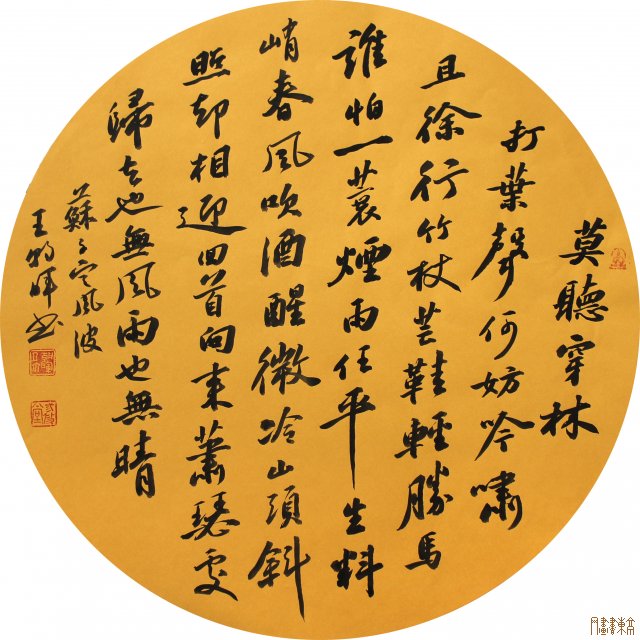 莫聽穿林
打葉聲何妨吟嘯
且徐行竹杖芒鞋輕勝馬
誰怕一蓑煙雨任平生料
峭春風吹酒醒微冷山頭斜
照却相迎回首向來蕭瑟處
歸去也無風雨也無晴
蘇子定風波
王